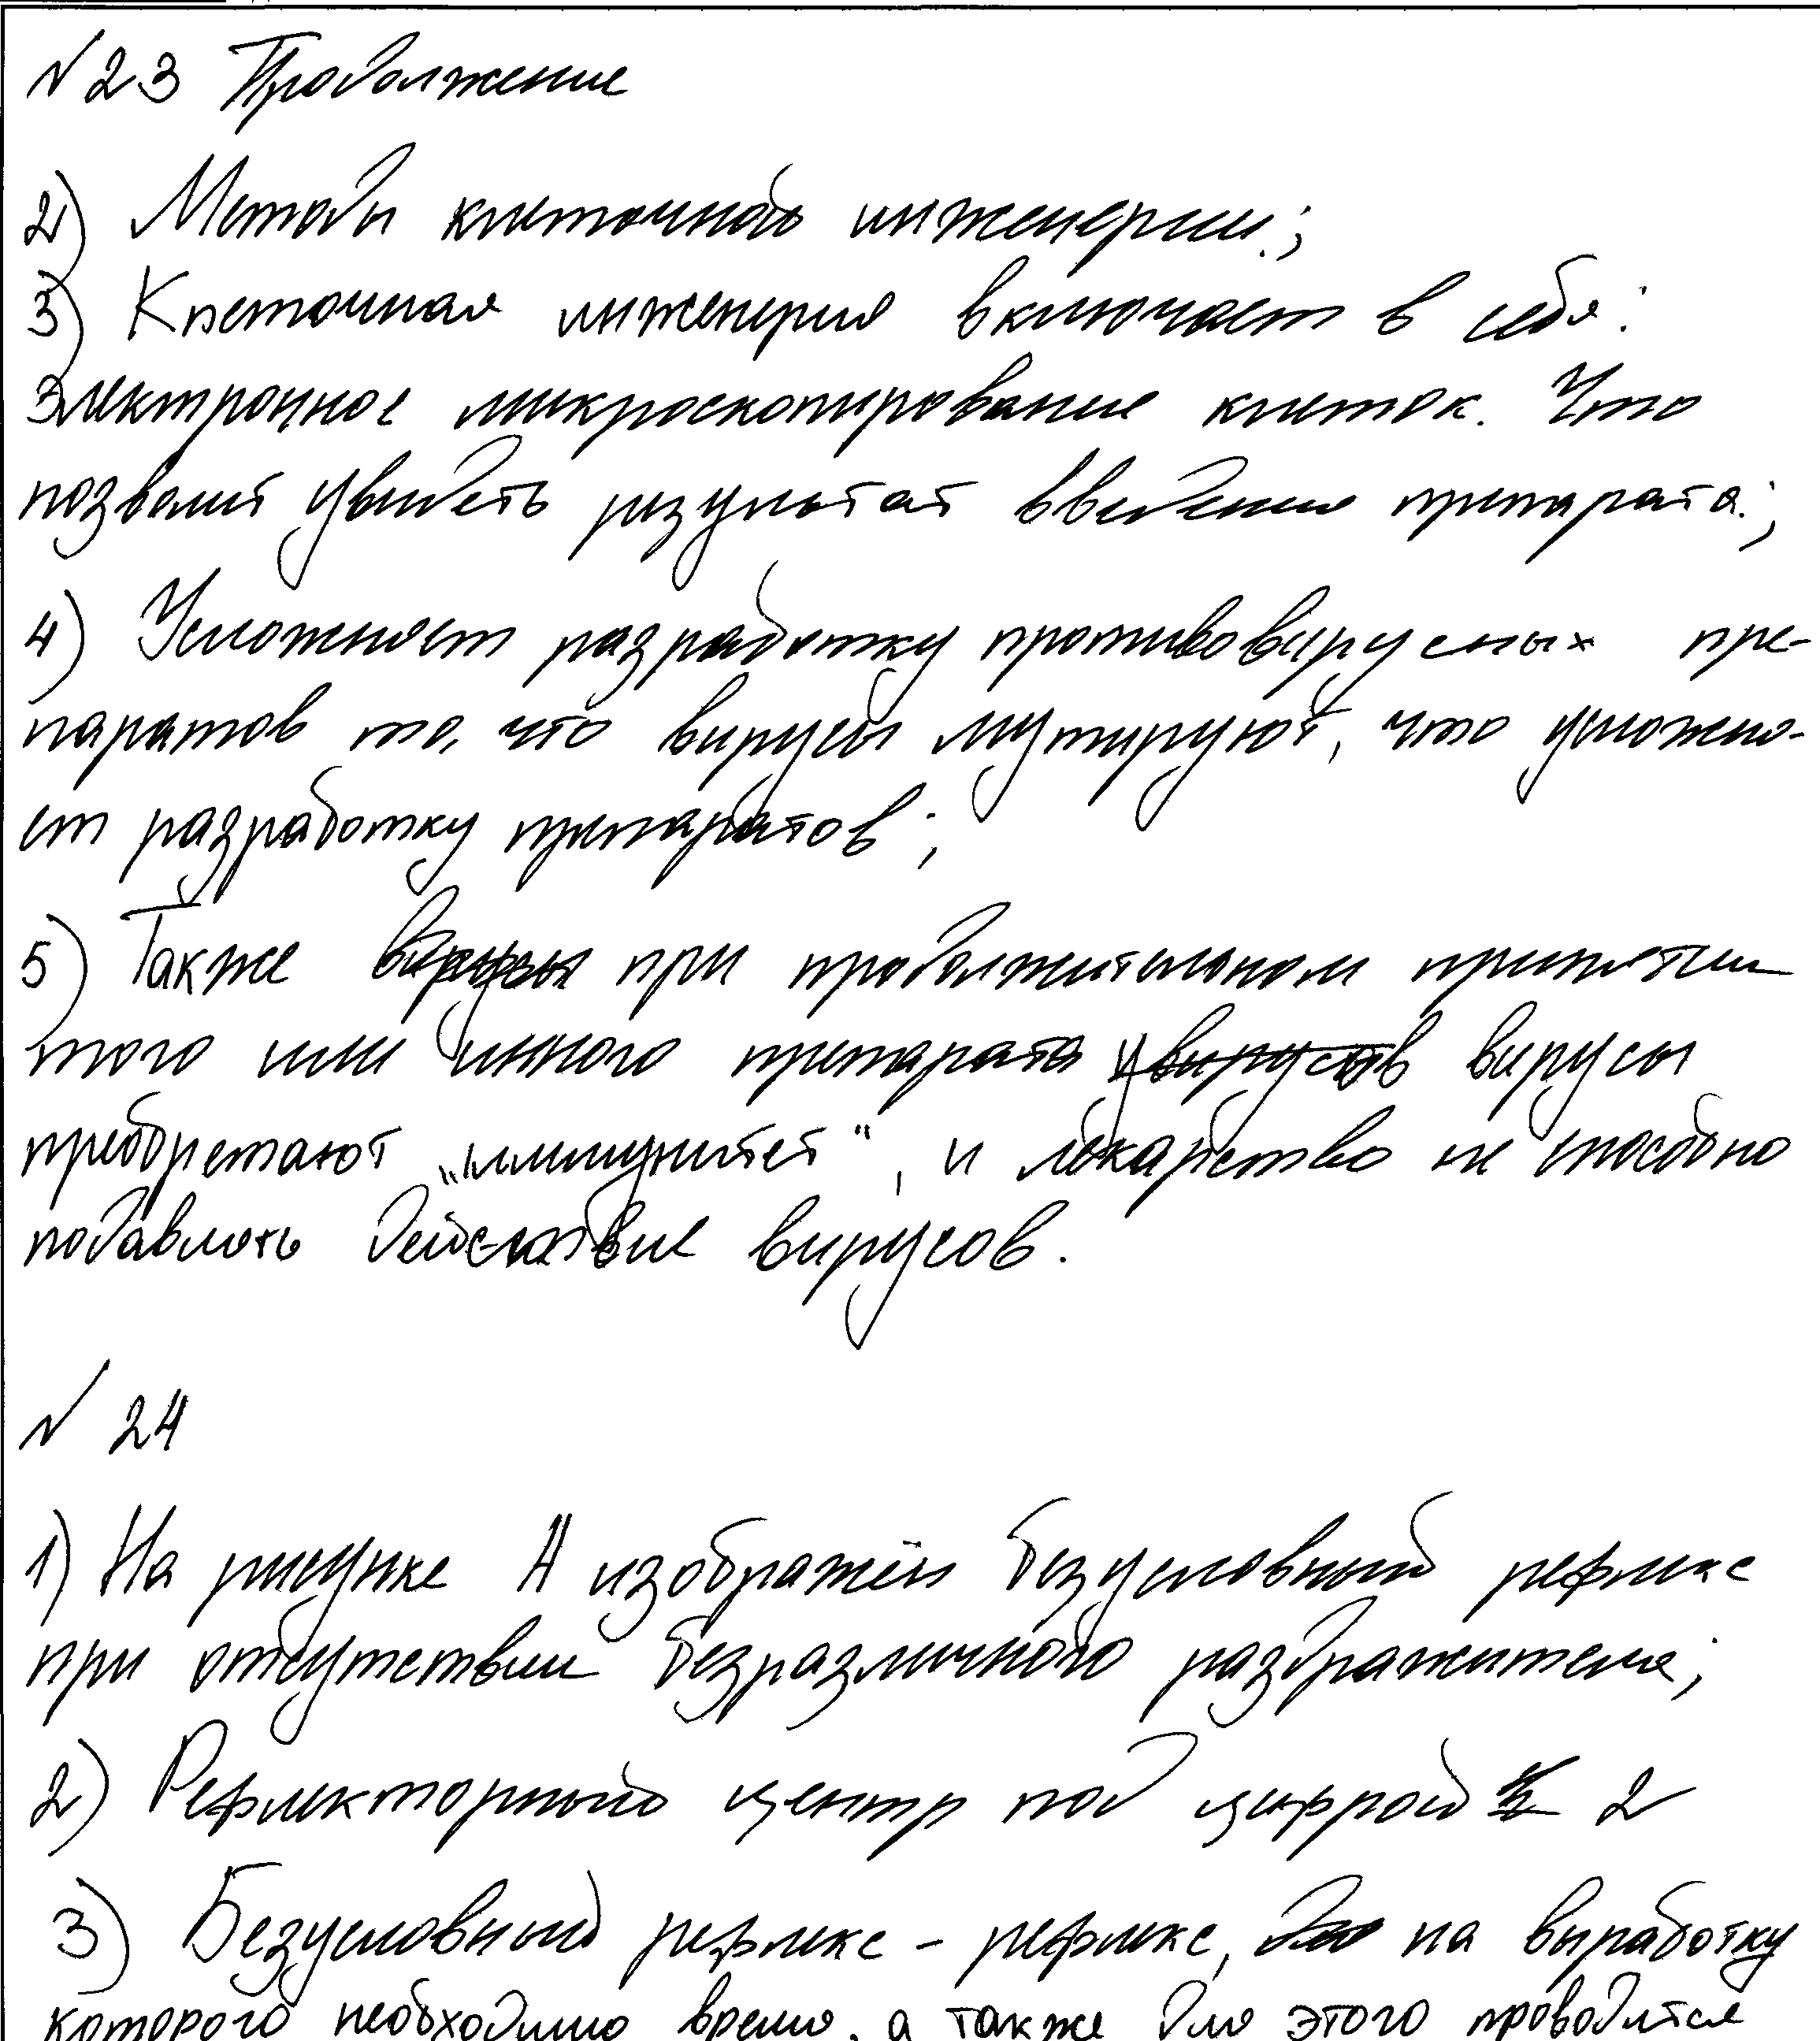 № 23 Продолжение
2) Методы клеточной инженерии.;
3) Клеточная инженерия включает в себя:
Электронное микроскопирование клеток. Что
позволит увидеть результат введения препарата.;
4) Усложняет разработку противовирусных пре-
паратов то, что вирусы мутируют, что усложня-
ет разработку препаратов;
5) Также вирусы при продолжительном принятии
того или инного препарата вирусов вирусы
преобретают „иммунитет“, и лекарство не способно
подавлять действие вирусов.
№ 24
1) На рисунке А изображён безусловный рефлекс
при отсутствии безразличного раздражителя;
2) Рефлекторный центр под цифрой 2
3) Безусловный рефлекс - рефлекс, для на выработку
которого необходимо время, а также для этого проводится